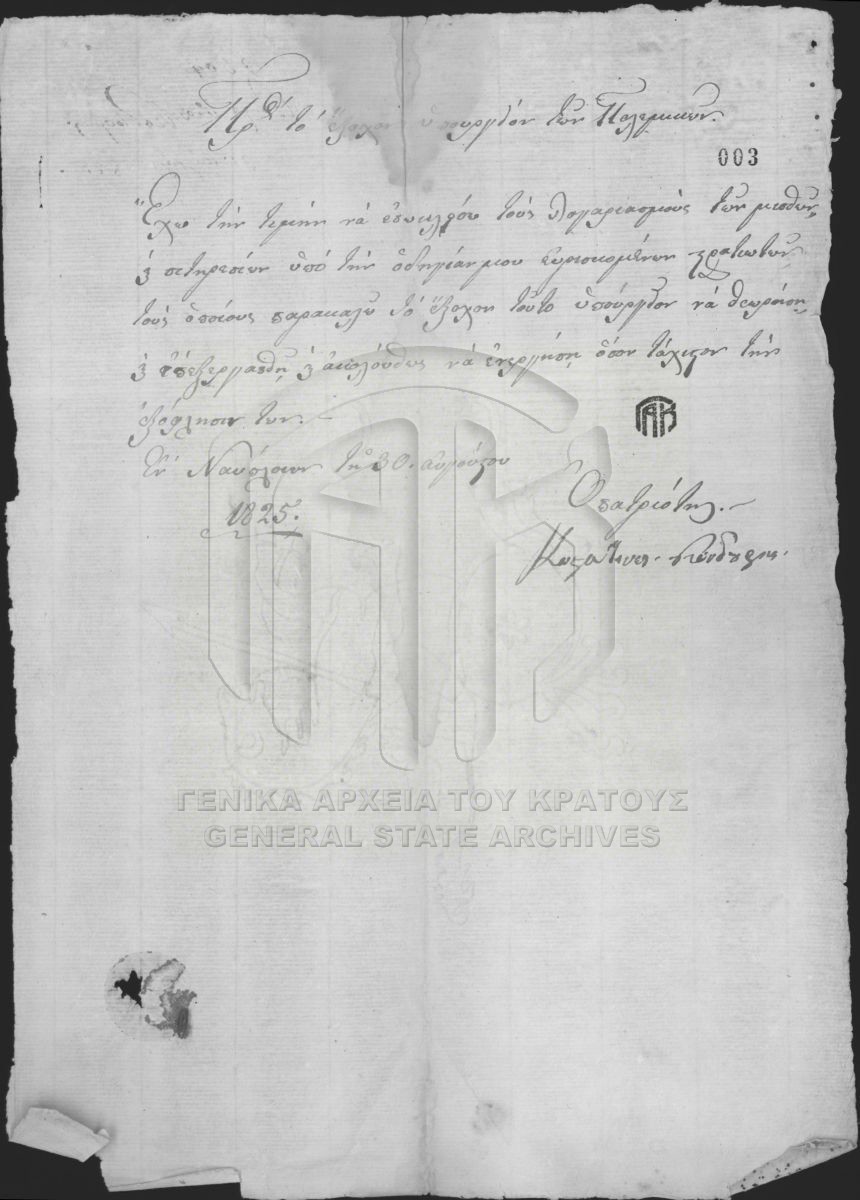 Πρὸς τὸ ἔξοχον ὑπουργεῖον τῶν Πολεμικῶν.
003
Ἔχω τὴν τιμὴν νὰ ἐπικλείσω τοὺς λογαριασμοὺς τῶν μισθῶν
ϗ σιτηρεσίων ὑπὸ τὴν ὁδηγίαν μου εὑρισκομένων στρατιωτῶν
τοὺς ὁποίους παρακαλῶ τὸ ἔξοχον τοῦτο ὑπουργεῖον νὰ θεωρήση
ϗ ἐπεξεργασθῆ, ϗ ἀκολούθως νὰ ἐνεργήση ὅσον τάχιστον τὴν
ἐξόφλησίν των.
ΓΑΚ
Ἐν Ναυπλίῳ τῇ 30. αὐγούστου
1825.
Ὁ πατριώτης.
ΓΕΝΙΚΑ ΑΡΧΕΙΑ ΤΟΥ ΚΡΑΤΟΥΣ
GENERAL STATE ARCHIVES